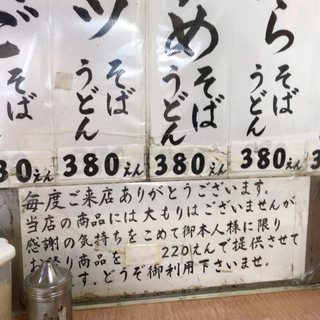 ら
そば
うどん
380えん
め
そば
うどん
380えん
ツ
そば
うどん
380えん
ご
そば
80えん
毎度ご来店ありがとうございます。
当店の商品には大もりはございませんが
感謝の気持ちをこめて御本人様に限り
お替り商品を 220えんで提供させて
ます。どうぞ御利用下さいませ。